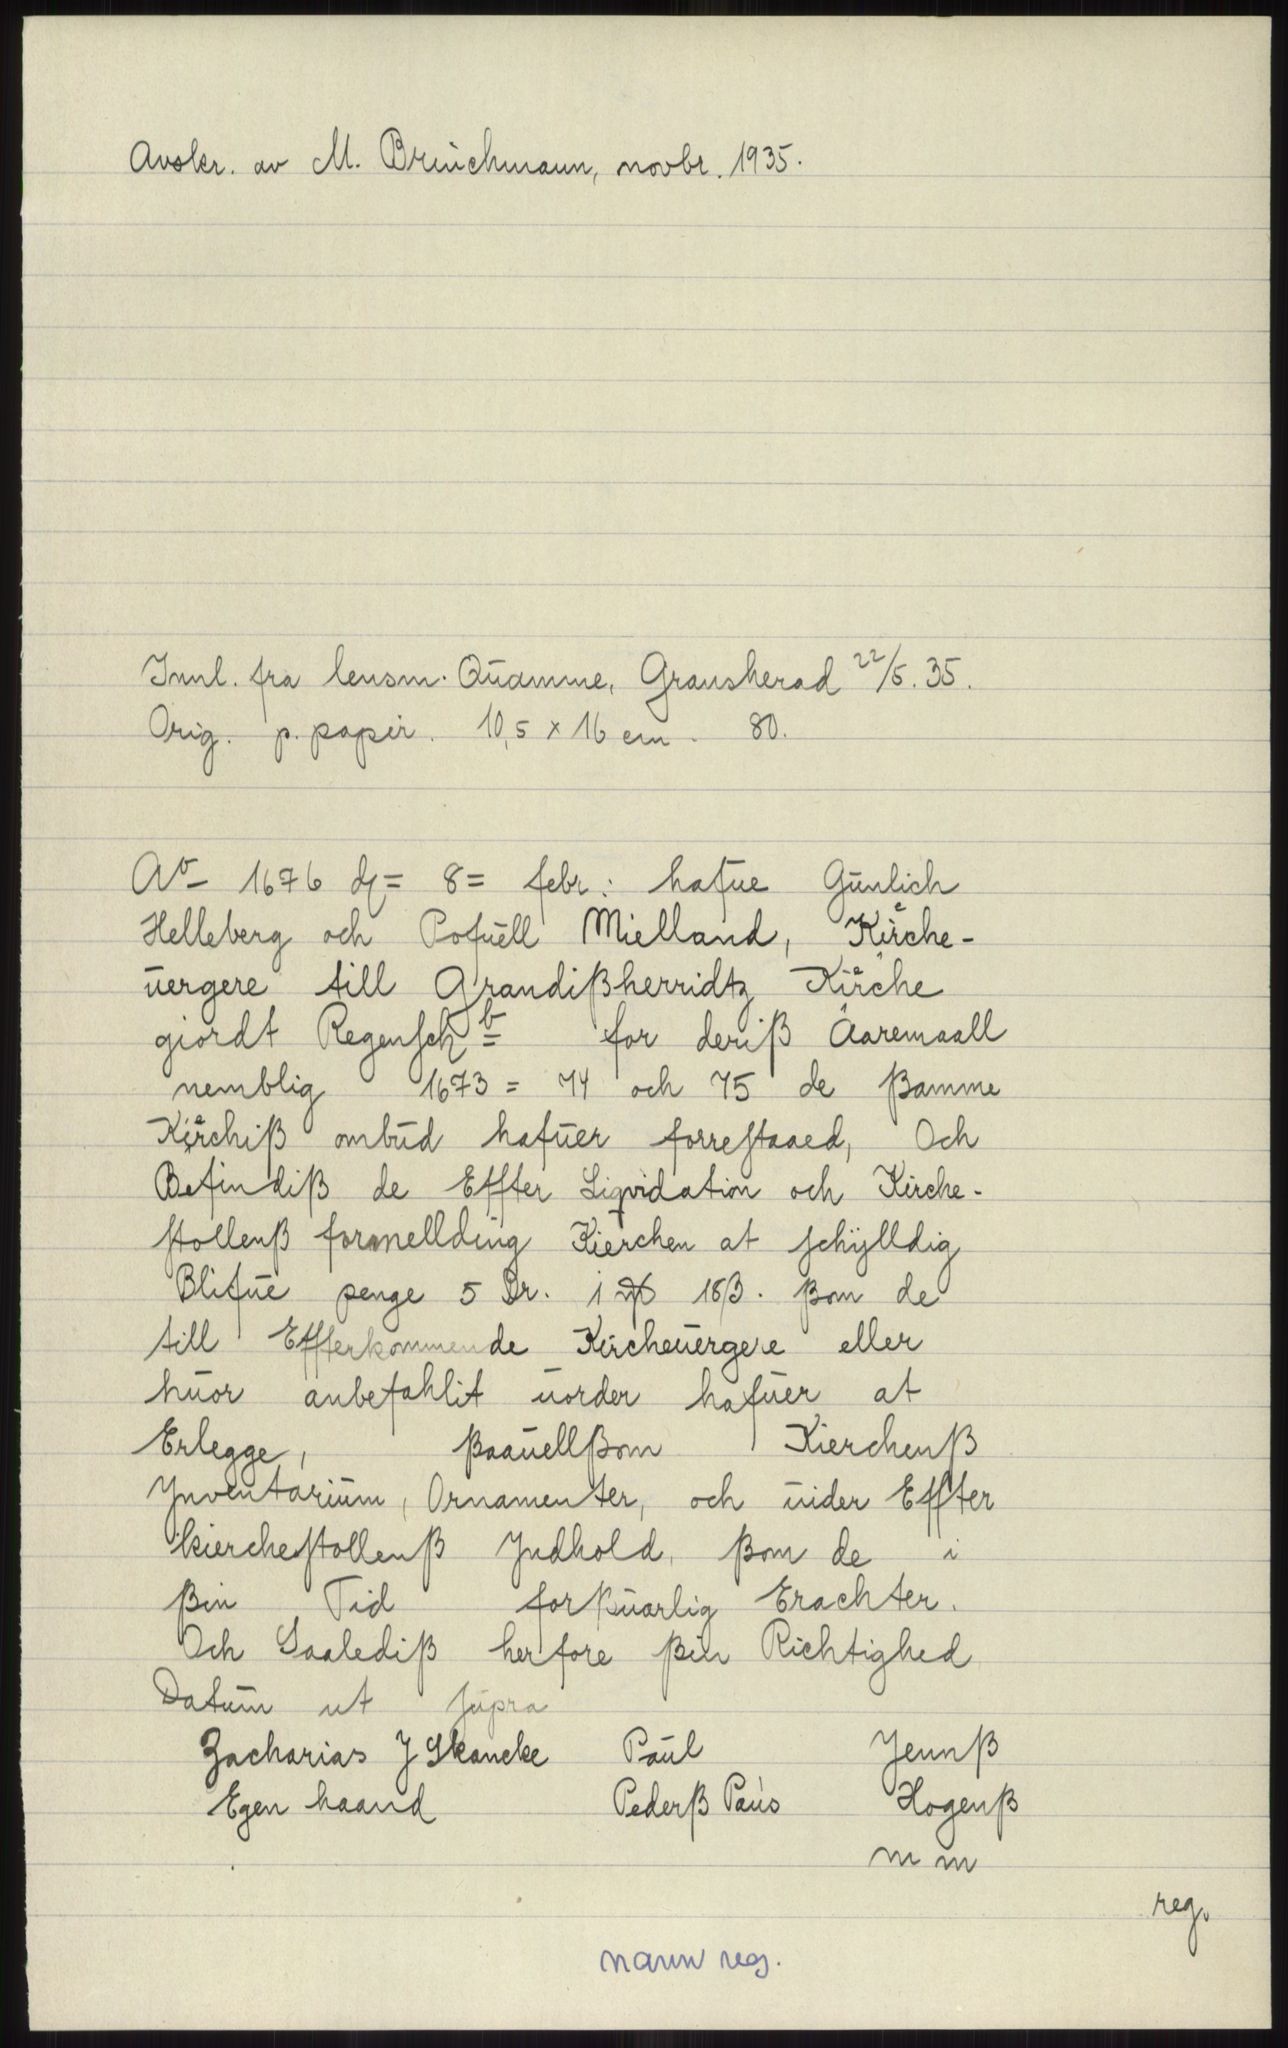 Avskr. av M. Bruichmann, novbr. 1935.
Innl. fra lensm. Quamme, Gransherad 22/5. 35.
Orig. p. papir. 10,5 x 16 cm. 80.
Ao 1676 dj= 8= febr: hafue Gunlich
Helleberg och Pofuell Mielland, Kirche-
uergere till Grandißherridtz Kirche
giordt Regensch for deriß Aaremaall
nemblig 1673 = 74 och 75 de ßamme
Kirchiß ombud hafuer forrestaaed, Och
Befindiß de Effter Liqvidation och Kirche-
stollenß formellding Kierchen at schÿlldig
Blifue penge 5 Dr. 1 18 β. ßom de
till Effterkommende Kircheuergere eller
huor anbefahlit uorder hafuer at
Erlegge, ßaauellßom Kierchenß
Ynventarium, Ornamenter, och uider Effter
kierchestollenß Yndhold, ßom de i
ßin Tid forßuarlig Erachter.
Och Saalediß herfore ßin Richtighed
Datum ut supra
Zacharias J Skancke Paul Jennß
Egen haand Pederß Paus Hogenß
m m
reg.
navn reg.